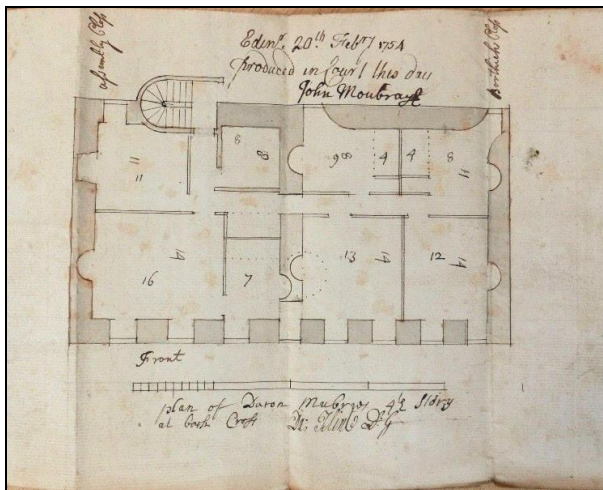 assembly Closs
Edinr. 20th. Febry 1754
produced in Court this day
John Moubray
8
8
11
11
9
8
4
4
8
11
16
14
7
13
14
12
14
Front
plan of Daron Mubries 4th Story
at back Cross